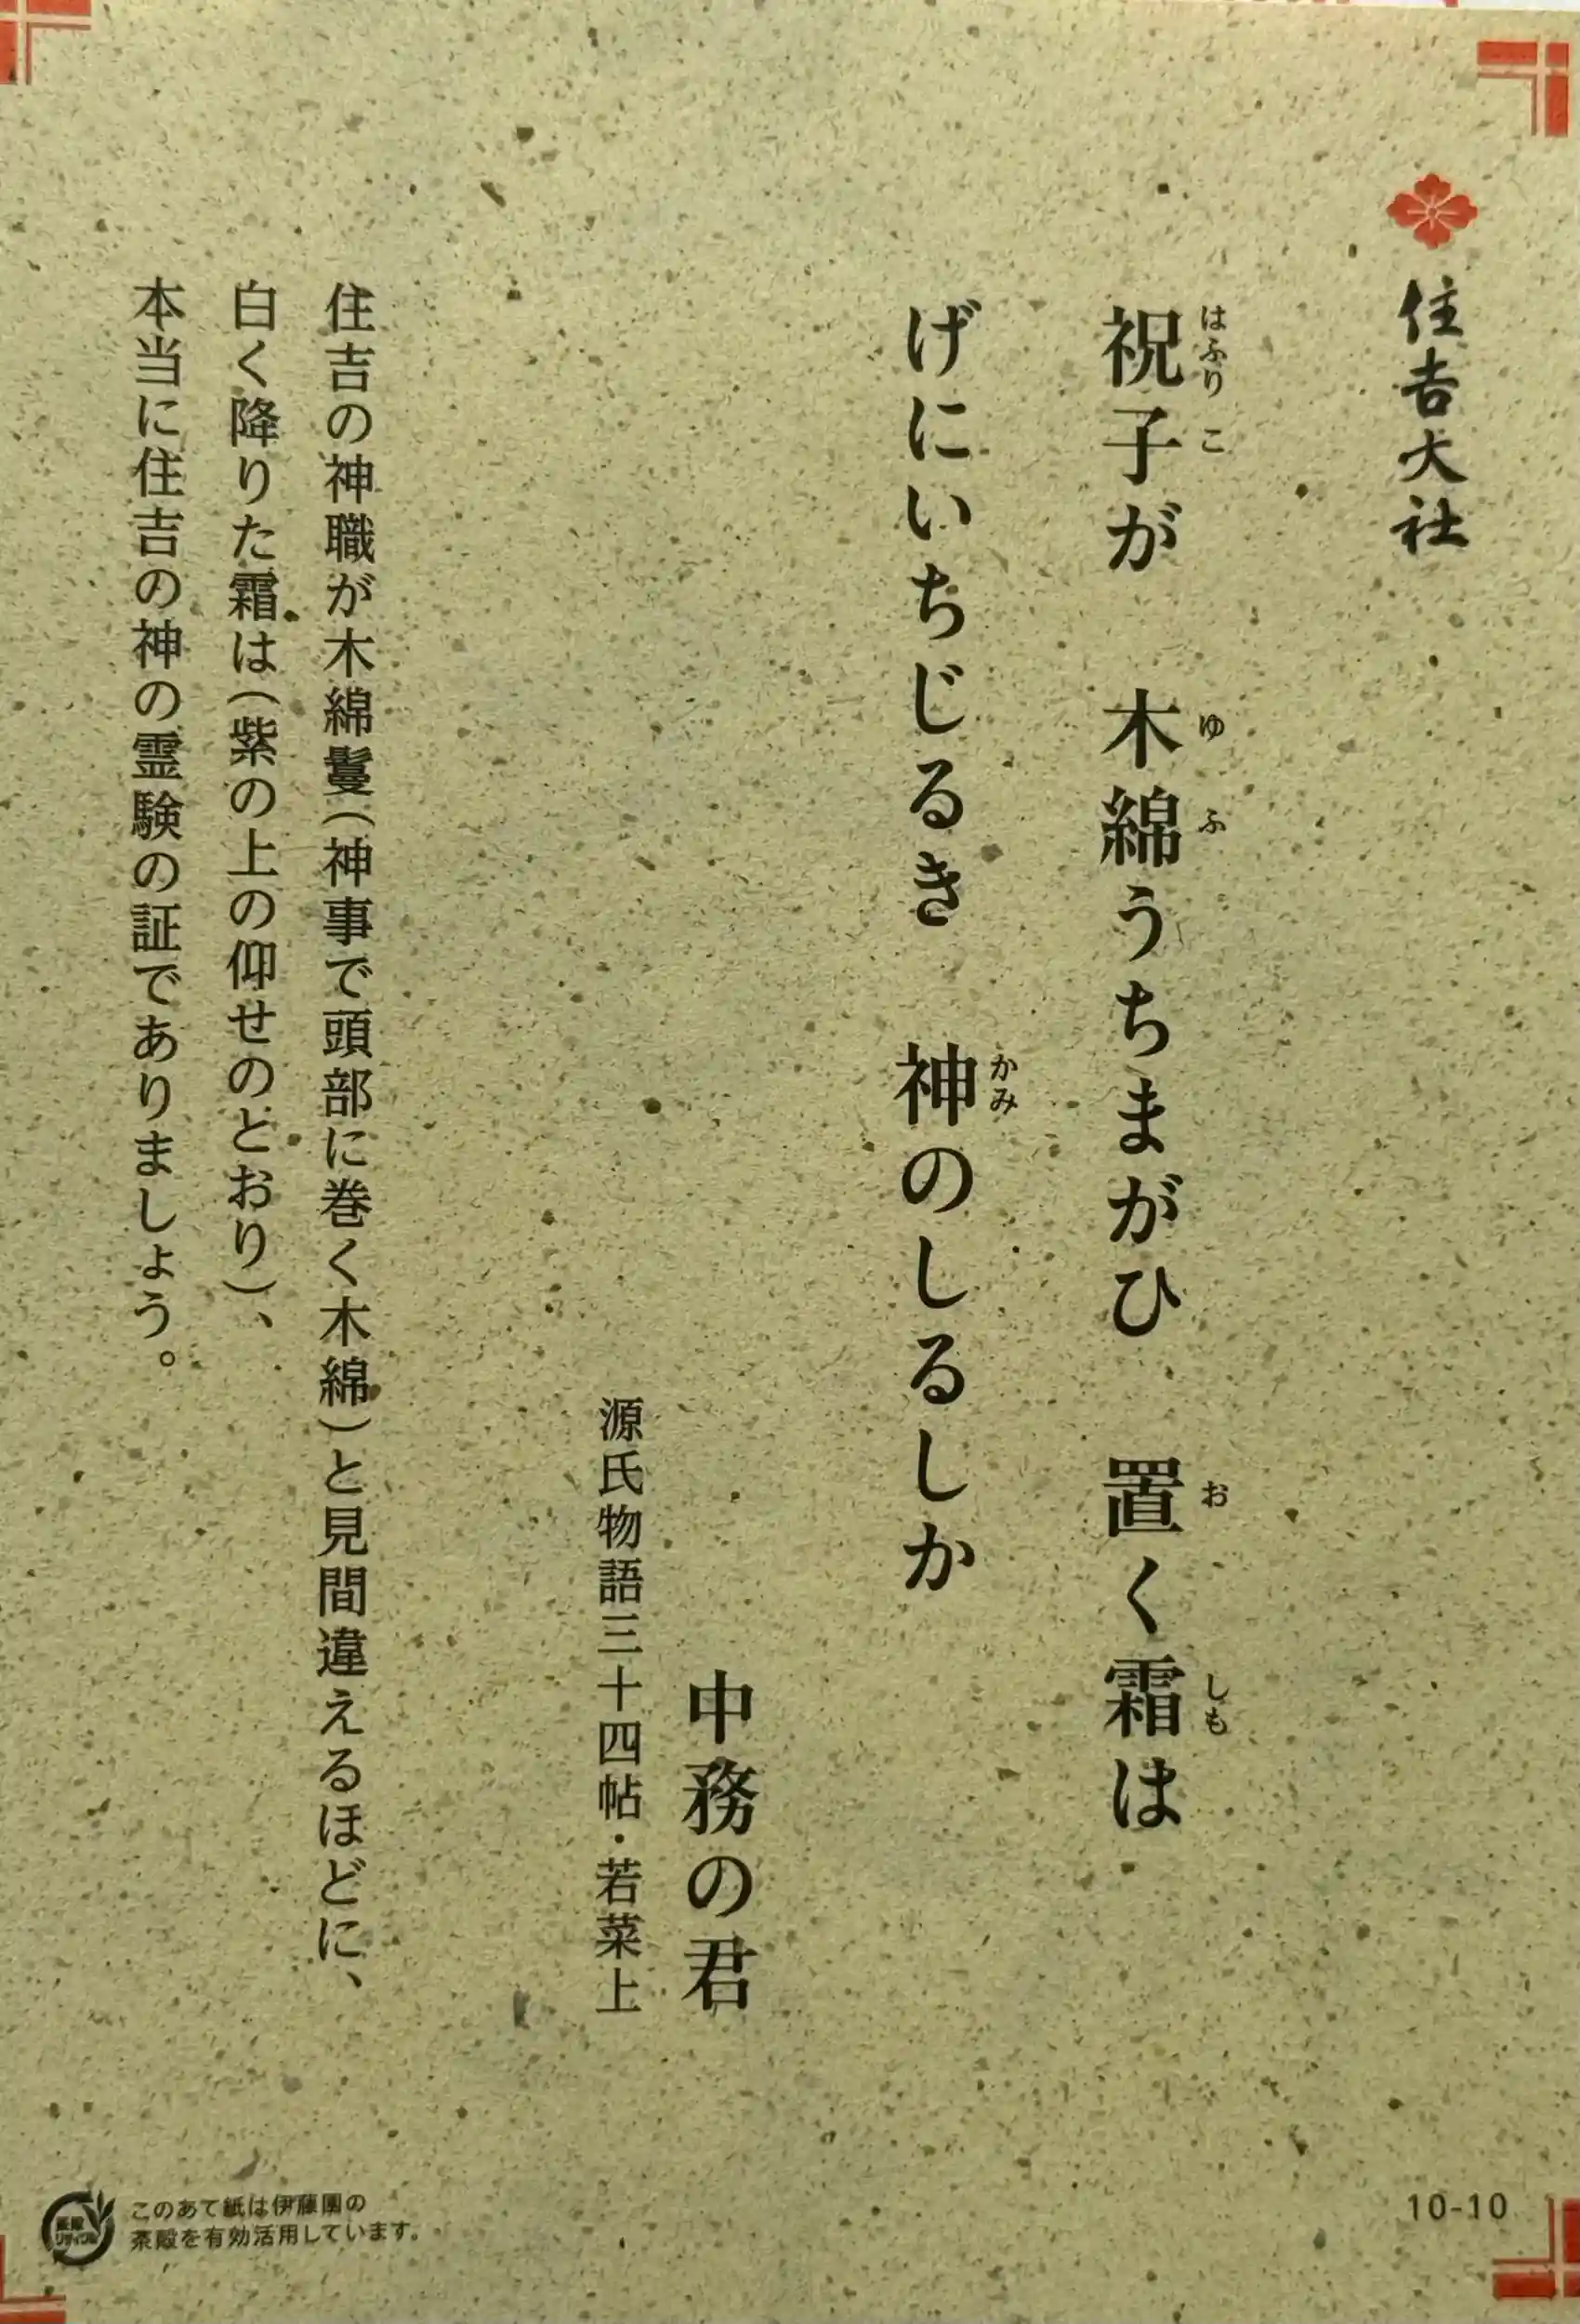 住吉大社
祝子が 木綿うちまがひ 置く霜は
はふり こ ゆ ふ お しも
げにいちじるき 神のしるしか
かみ
中務の君
源氏物語三十四帖・若菜上
住吉の神職が木綿鬘(神事で頭部に巻く木綿)と見間違えるほどに、
白く降りた霜は(紫の上の仰せのとおり)、
本当に住吉の神の霊験の証でありましょう。
このあて紙は伊藤園の
茶殻を有効活用しています。
10-10